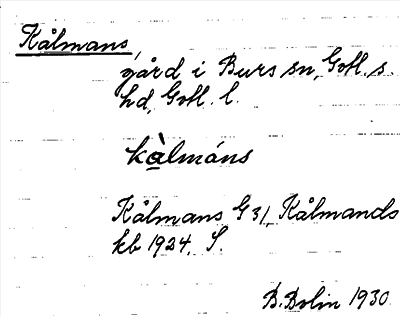 Kålmans,
gård i Burs sn, Gotl. s.
hd, Gotl. l.
kàlmáns
Kålmans G 31, Kålmands
kb 1924, S.
B. Bolin 1930